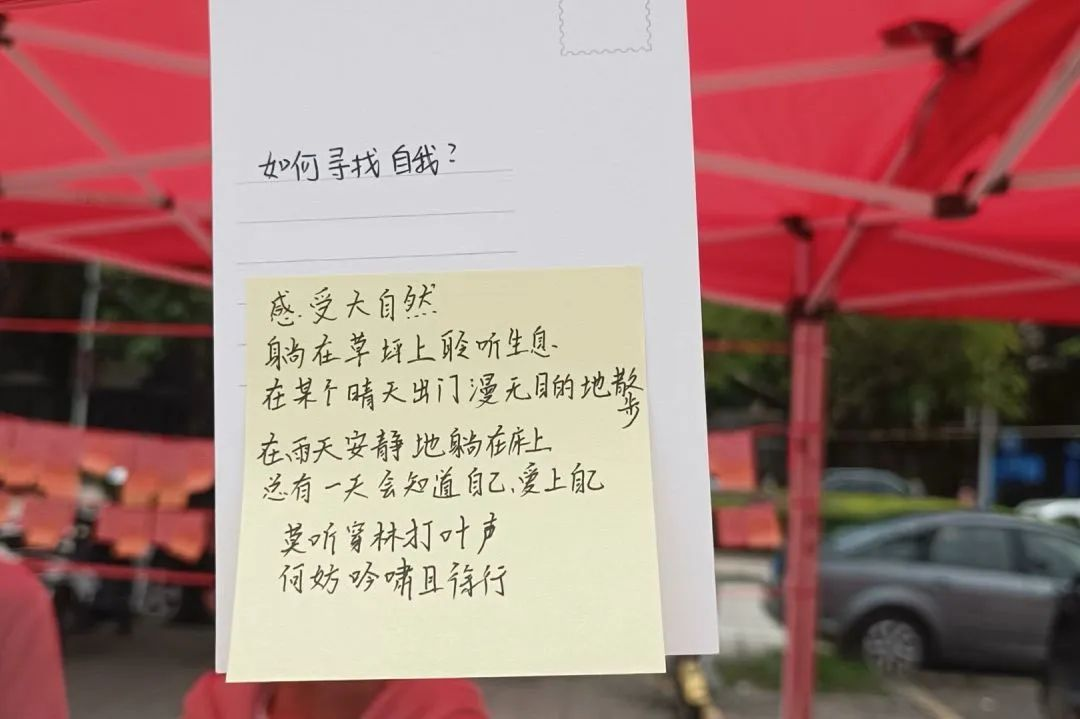 如何寻找自我?
感受大自然
躺在草坪上聆听生息.
在某个晴天出门漫无目的地散步
在雨天安静地躺在床上
总有一天会知道自己、爱上自己
莫听穿林打叶声
何妨吟啸且徐行